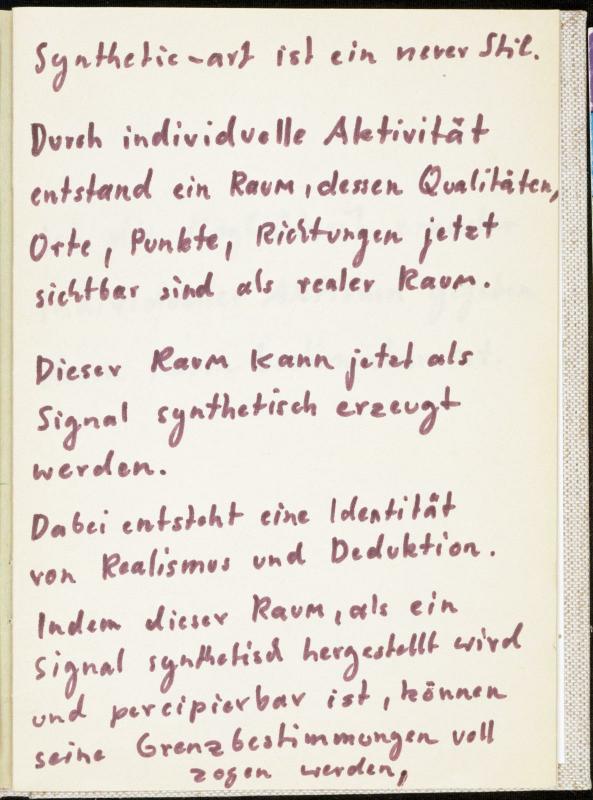 Synthetic-art ist ein neuer Stil.
Durch individuelle Aktivität
entstand ein Raum, dessen Qualitäten,
Orte, Punkte, Richtungen jetzt
sichtbar sind als realer Raum.
Dieser Raum kann jetzt als
Signal synthetisch erzeugt
werden.
Dabei entsteht eine Identität
von Realismus und Deduktion.
Indem dieser Raum, als ein
Signal synthetisch hergestellt wird
und percipierbar ist, können
seine Grenzbestimmungen voll
zogen werden,